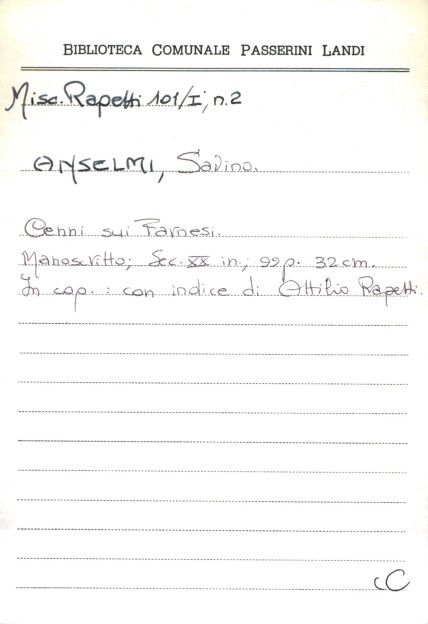 BIBLIOTECA COMUNALE PASSERINI LANDI
Misc. Rapetti 101/I, n.2
ANSELMI, Savino.
Cenni sui Farnesi.
Manoscritto; Sec. XX in.; 99 p. 32 cm.
In cop. : con indice di Attilio Rapetti.
CC